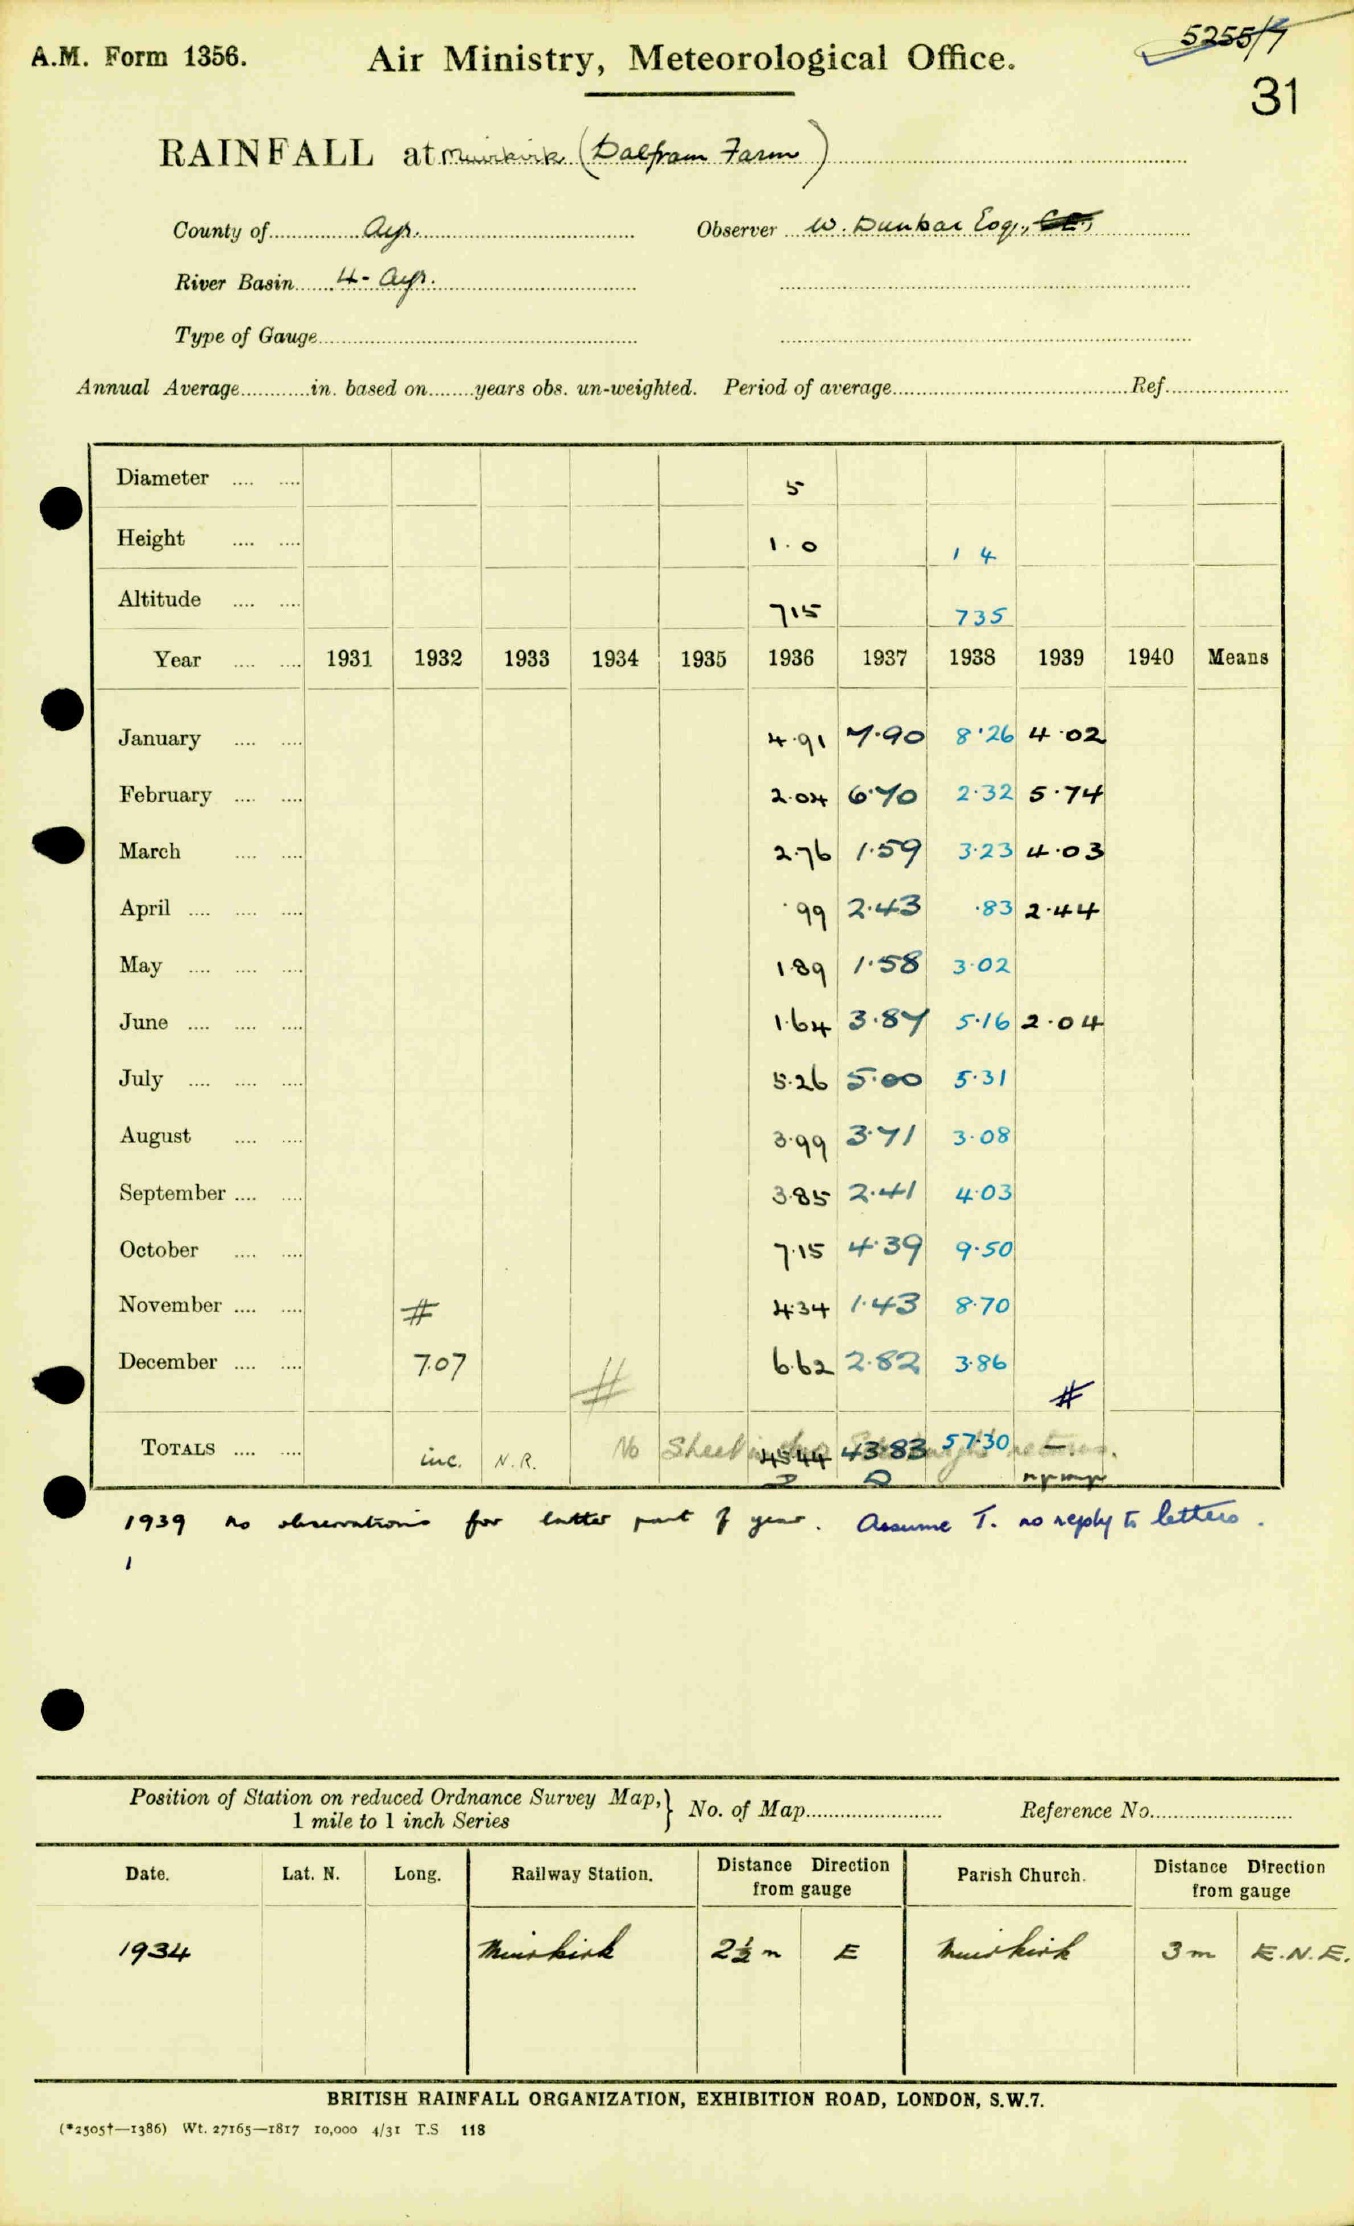 5255/7
A.M. Form 1356. Air Ministry, Meteorological Office.
31
RAINFALL at Muirkirk (Dalfram Farm)
County of Ayr. Observer W. Dunbar Esq.,
River Basin 4 - Ayr.
Type of Gauge
Annual Average in. based on years obs. un-weighted. Period of average Ref.
Diameter 5
Height 1.0 1 4
Altitude 715 735
Year 1931 1932 1933 1934 1935 1936 1937 1938 1939 1940 Means
January 4.91 7.90 8.26 4.02
February 2.04 6.70 2.32 5.74
March 2.76 1.59 3.23 4.03
April .99 2.43 .83 2.44
May 1.89 1.58 3.02
June 1.64 3.87 5.16 2.04
July 5.26 5.00 5.31
August 3.99 3.71 3.08
September 3.85 2.41 4.03
October 7.15 4.39 9.50
November # 4.34 1.43 8.70
December 7.07 # 6.62 2.82 3.86 #
TOTALS inc. N.R. No Sheet in 45.44 43.83 57.30 — returns.
1939 no observations for latter part of year. Assume T. no reply to letters.
1
Position of Station on reduced Ordnance Survey Map, } No. of Map Reference No.
1 mile to 1 inch Series
Date. Lat. N. Long. Railway Station. Distance Direction from gauge Parish Church. Distance Direction from gauge
1934 Muirkirk 2½ m E Muirkirk 3 m E.N.E.
BRITISH RAINFALL ORGANIZATION, EXHIBITION ROAD, LONDON, S.W.7.
(*2505†—1386) Wt. 27165—1817 10,000 4/31 T.S 118